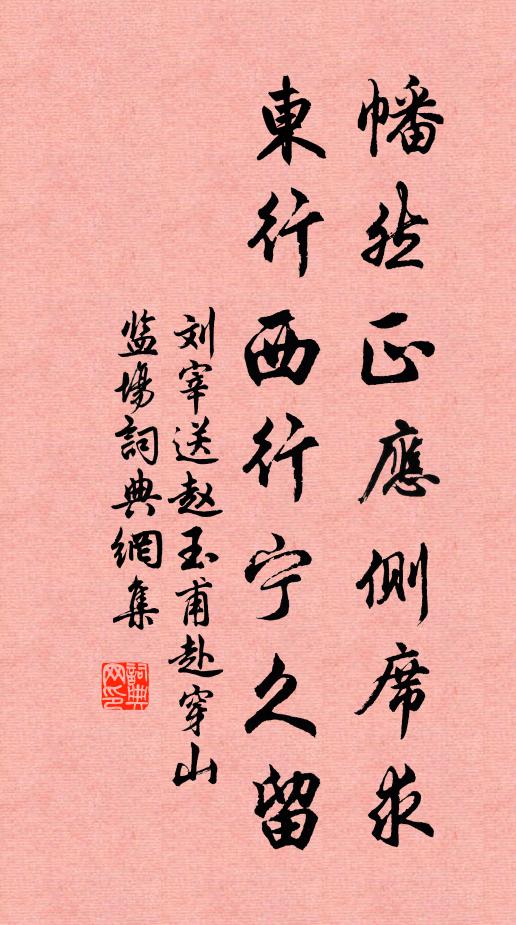 幡然正應側席求
東行西行宁久留
刘宰送赵玉甫赴穿山
监場詞典網集
詞典网印